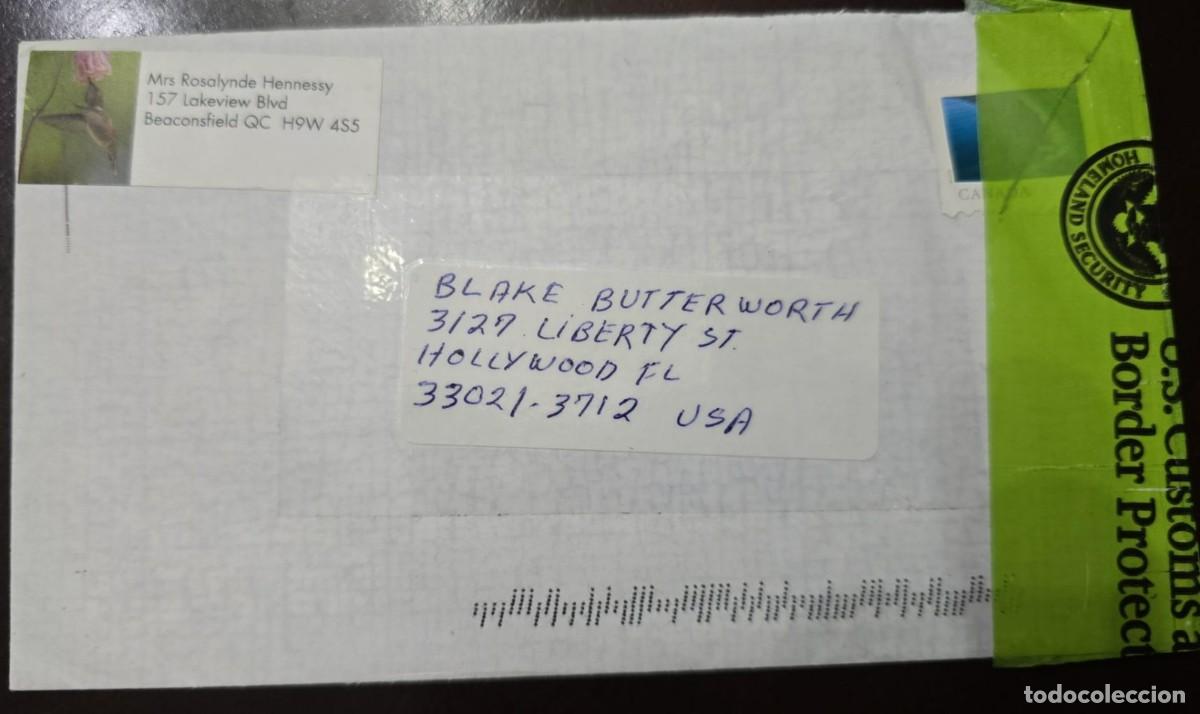 Mrs Rosalynde Hennessy
157 Lakeview Blvd
Beaconsfield QC H9W 4S5
CANADA
BLAKE BUTTERWORTH
3127 LIBERTY ST.
HOLLYWOOD FL
33021-3712 USA
HOMELAND SECURITY
U.S. Customs a
Border Protect
todocoleccion